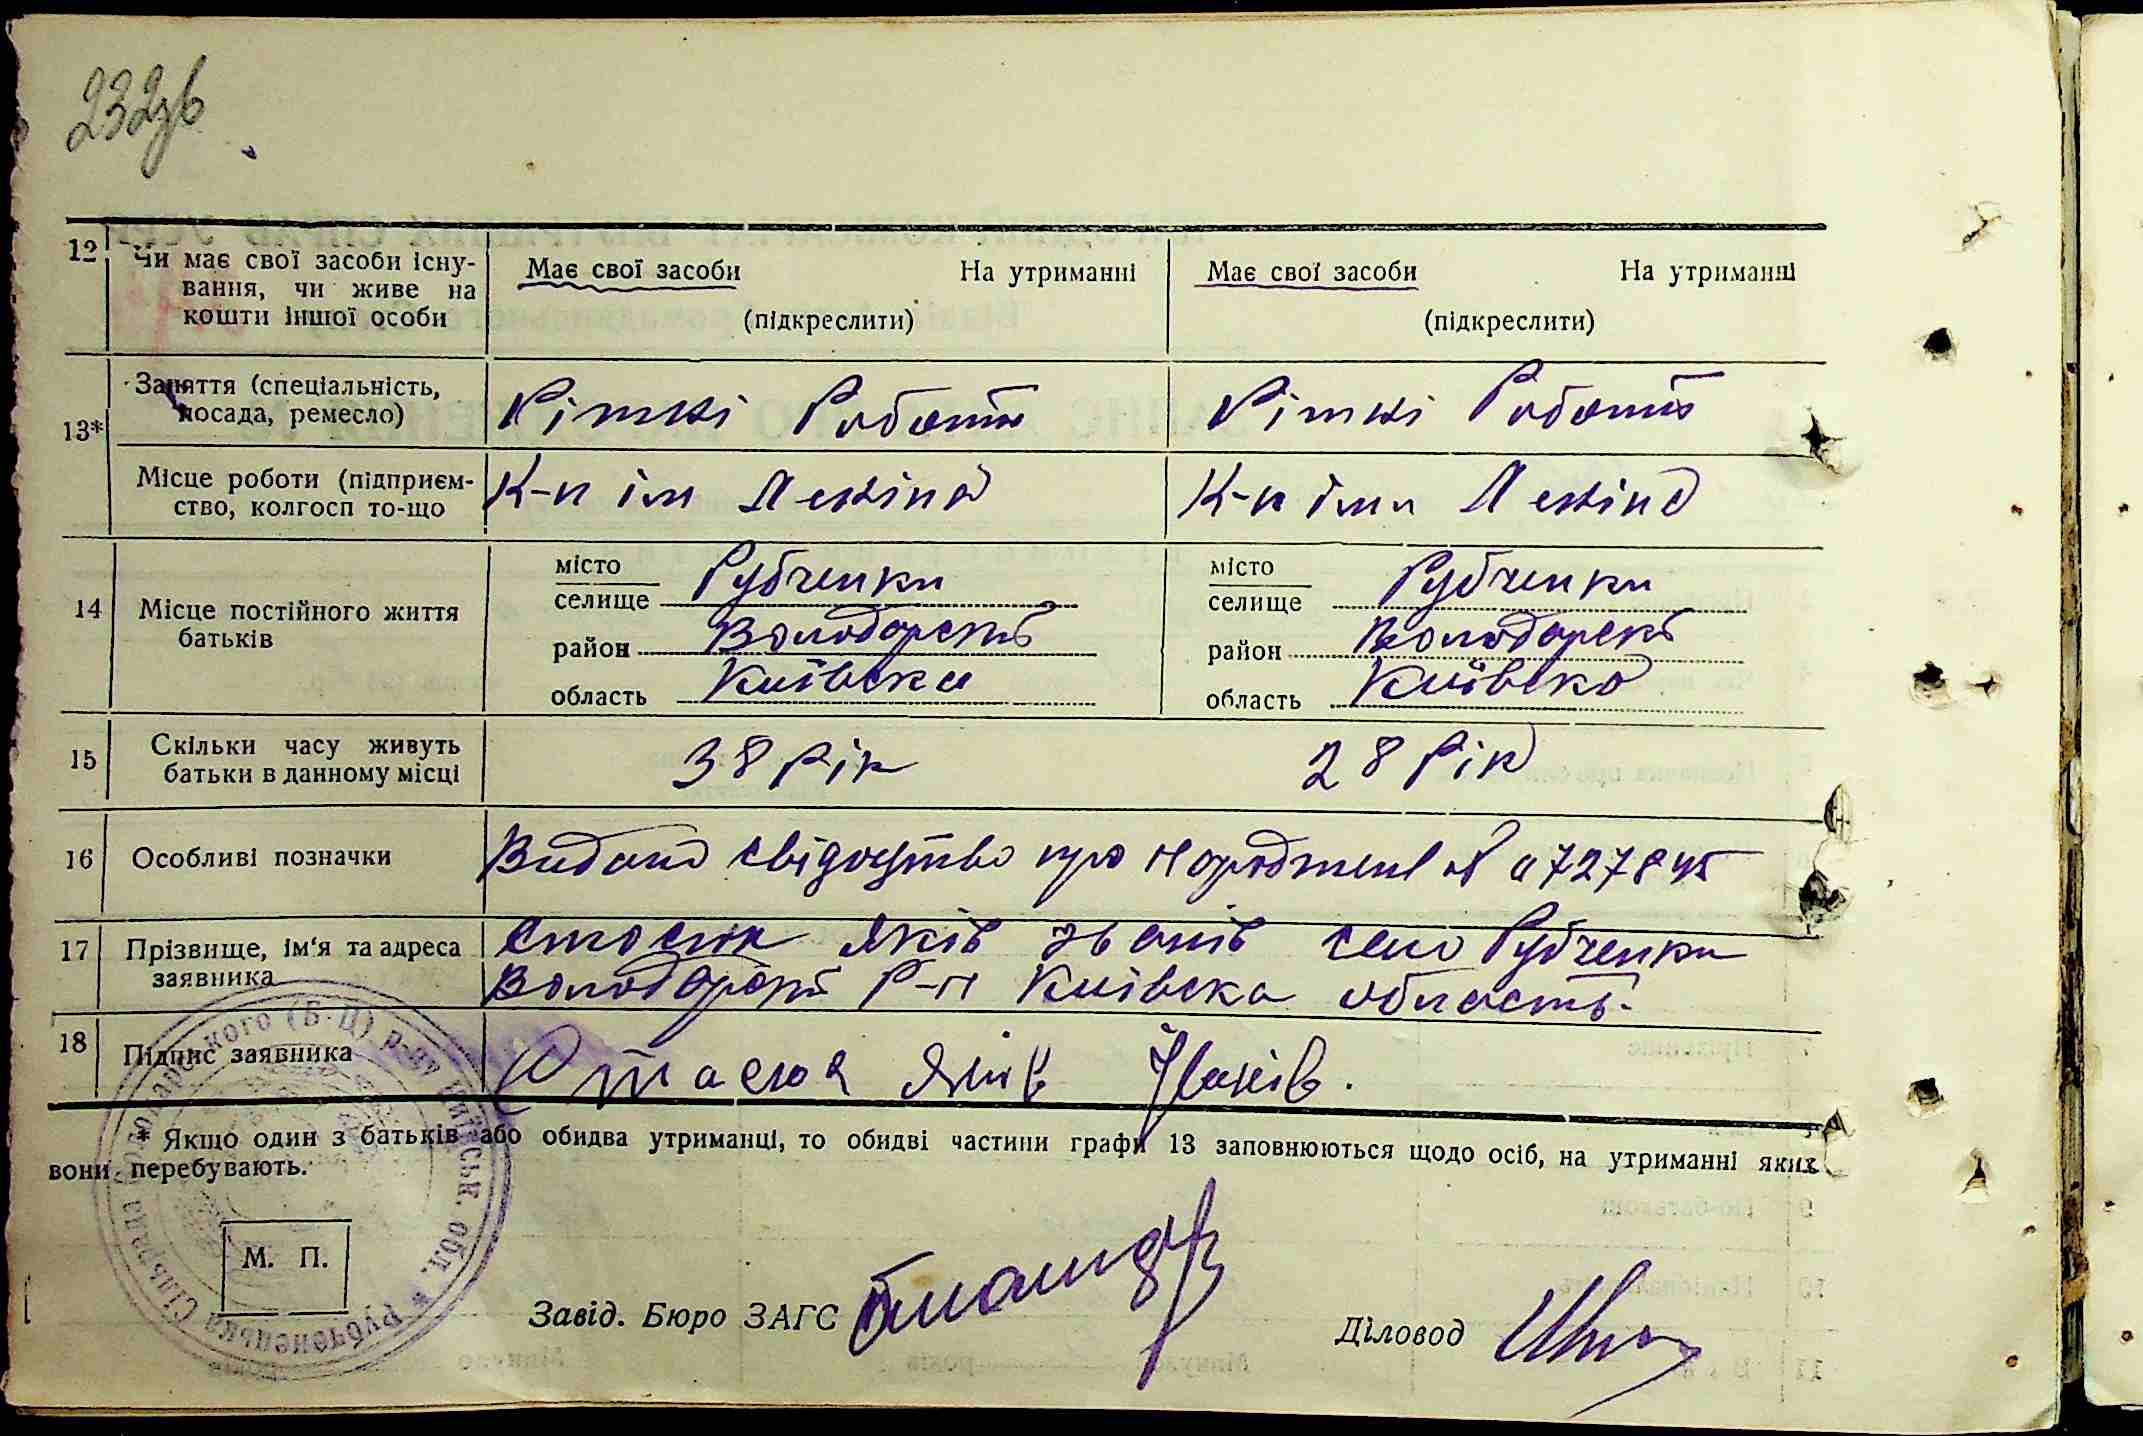 232зв
12 Чи має свої засоби існу-
вання, чи живе на
кошти іншої особи
Має свої засоби На утриманні
(підкреслити)
Має свої засоби На утриманні
(підкреслити)
13*
Заняття (спеціальність,
посада, ремесло)
Різткі Роботи
Різткі Роботи
Місце роботи (підприєм-
ство, колгосп то-що
К-п ім Леніна
К-п ім Леніна
14 Місце постійного життя
батьків
місто
селище Рубченки
район Володарский
область Київска
місто
селище Рубченки
район Володарск
область Київска
15 Скільки часу живуть
батьки в данному місці
38 Рік
28 Рік
16 Особливі позначки
Видано свідоцтво про народжені № а727895
17 Прізвище, ім'я та адреса
заявника
Стасюк Яків Іванів село Рубченки
Володарск Р-н Київска область.
18 Підпис заявника
Стасюк Яків Іванів.
* Якщо один з батьків або обидва утриманці, то обидві частини графи 13 заповнюються щодо осіб, на утриманні яких
вони перебувають.
М. П.
Рубченецька Сільрада Володарського (Б-Ц) р-ну Київськ. обл. *
Завід. Бюро ЗАГС
Діловод